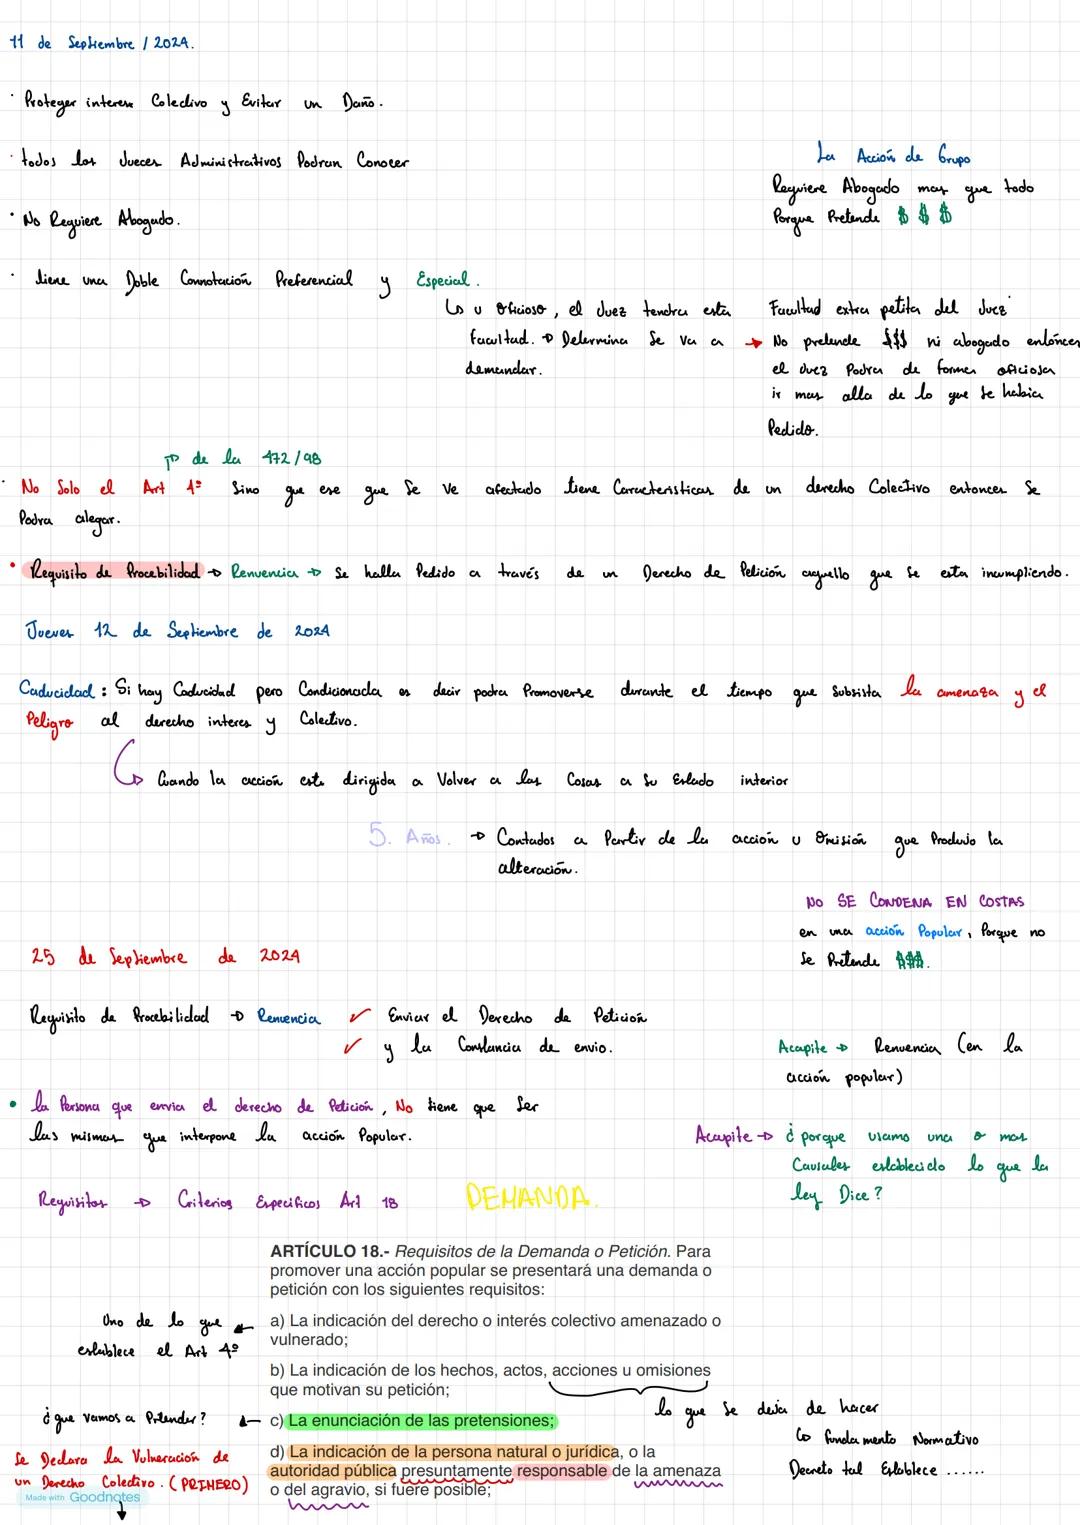 11 de Septiembre / 2024.
· Proteger interes Colectivo y Evitar un Daño.
· todos los Jueces Administrativos Podran Conocer
La Acción de Grupo
Requiere Abogado mas que todo
Porque Pretende $ $ $
· No Requiere Abogado.
· tiene una Doble Connotación Preferencial y Especial.
↳ u oficioso, el Juez tendra esta
facultad. → Determina Se va a
demandar.
Facultad extra petita del Juez
→ No pretende $$$ ni abogado entónces
el Juez Podra de forma oficiosa
ir mas alla de lo que se habia
Pedido.
↱ de la 472/98
· No Solo el Art 4º Sino que ese que Se Ve afectado tiene Caracteristicas de un derecho Colectivo entonces Se
Podra alegar.
· Requisito de Procebilidad → Renuencia → Se halla Pedido a través de un Derecho de Petición aquello que Se esta incumpliendo.
Jueves 12 de Septiembre de 2024
Caducidad: Si hay Caducidad pero Condicionada es decir podra Promoverse durante el tiempo que Subsista la amenaza y el
Peligro al derecho interes y Colectivo.
↳ Cuando la acción este dirigida a Volver a las Cosas a Su Estado interior
5. Años. → Contados a Partir de la acción u Omisión que Produjo la
alteración.
NO SE CONDENA EN COSTAS
en una acción Popular, Porque no
Se Pretende $$$.
25 de Septiembre de 2024
Requisito de Procebilidad → Renuencia ✓ Enviar el Derecho de Petición
✓ y la Constancia de envio.
Acapite → Renuencia (en la
acción popular)
• la Persona que envia el derecho de Petición, No tiene que Ser
las mismas que interpone la acción Popular.
Acapite → ¿ porque usamo una o mas
Causales establecido lo que la
ley Dice?
Requisitos → Criterios Especificos Art 18 DEMANDA.
ARTÍCULO 18.- Requisitos de la Demanda o Petición. Para
promover una acción popular se presentará una demanda o
petición con los siguientes requisitos:
Uno de lo que
establece el Art 4º
a) La indicación del derecho o interés colectivo amenazado o
vulnerado;
b) La indicación de los hechos, actos, acciones u omisiones
que motivan su petición;
lo que Se dejia de hacer
↳ fundamento Normativo
Decreto tal Establece ......
¿que vamos a Pretender?
c) La enunciación de las pretensiones;
Se Declara la Vulneración de
un Derecho Colectivo. (PRIMERO)
d) La indicación de la persona natural o jurídica, o la
autoridad pública presuntamente responsable de la amenaza
o del agravio, si fuere posible;
Made with Goodnotes